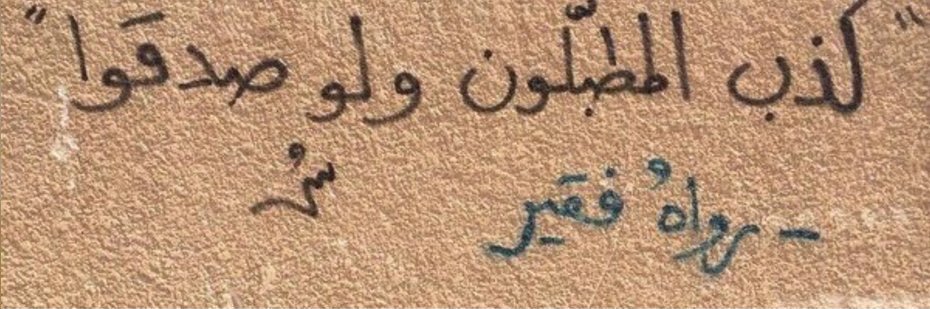 "كذب المطبّلون ولو صدقوا"
- رواهُ فقير